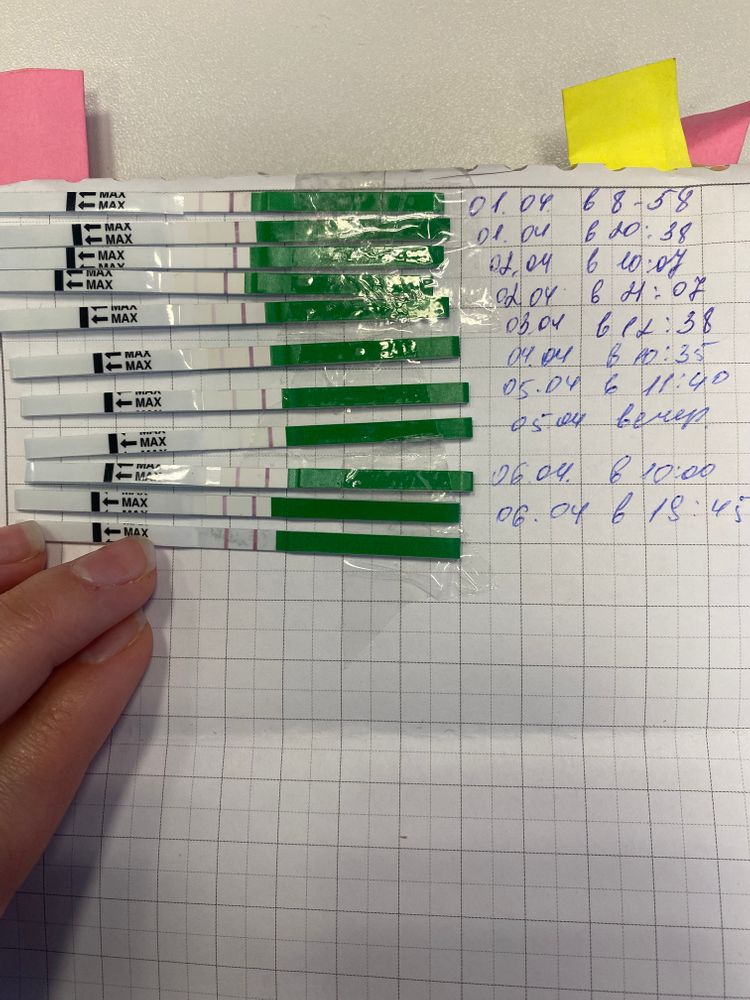 MAX
MAX
01.04 в 8-58
MAX
MAX
01.04 в 20:38
MAX
MAX
02.04 в 10:07
MAX
MAX
02.04 в 21:07
MAX
MAX
03.04 в 12:38
MAX
MAX
04.04 в 10:35
MAX
MAX
05.04 в 11:40
MAX
MAX
05 04 вечер.
MAX
MAX
06.04. в 10:00
MAX
MAX
06.04 в 19:45
MAX